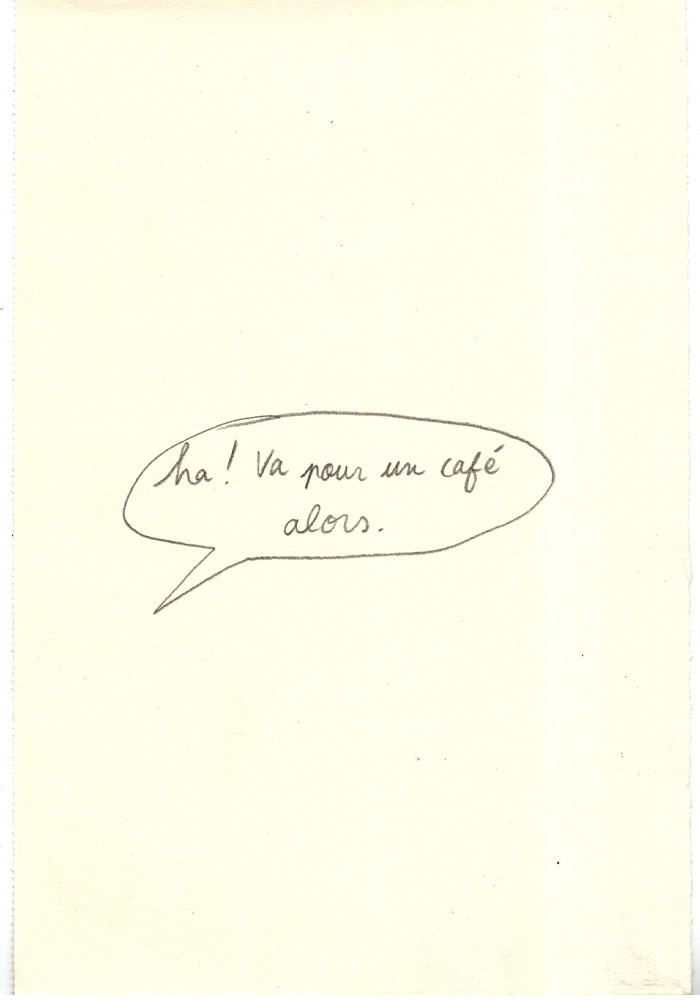 ha! Va pour un café
alors.